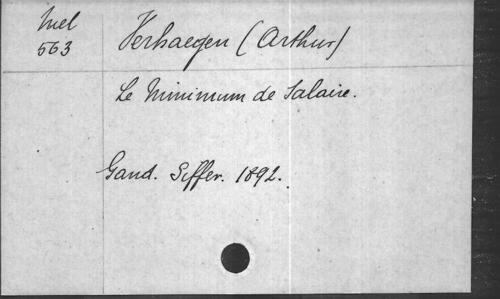 Mel
563
Verhaegen (Arthur)
Le Minimum de Salaire.
Gand. Siffer. 1892.